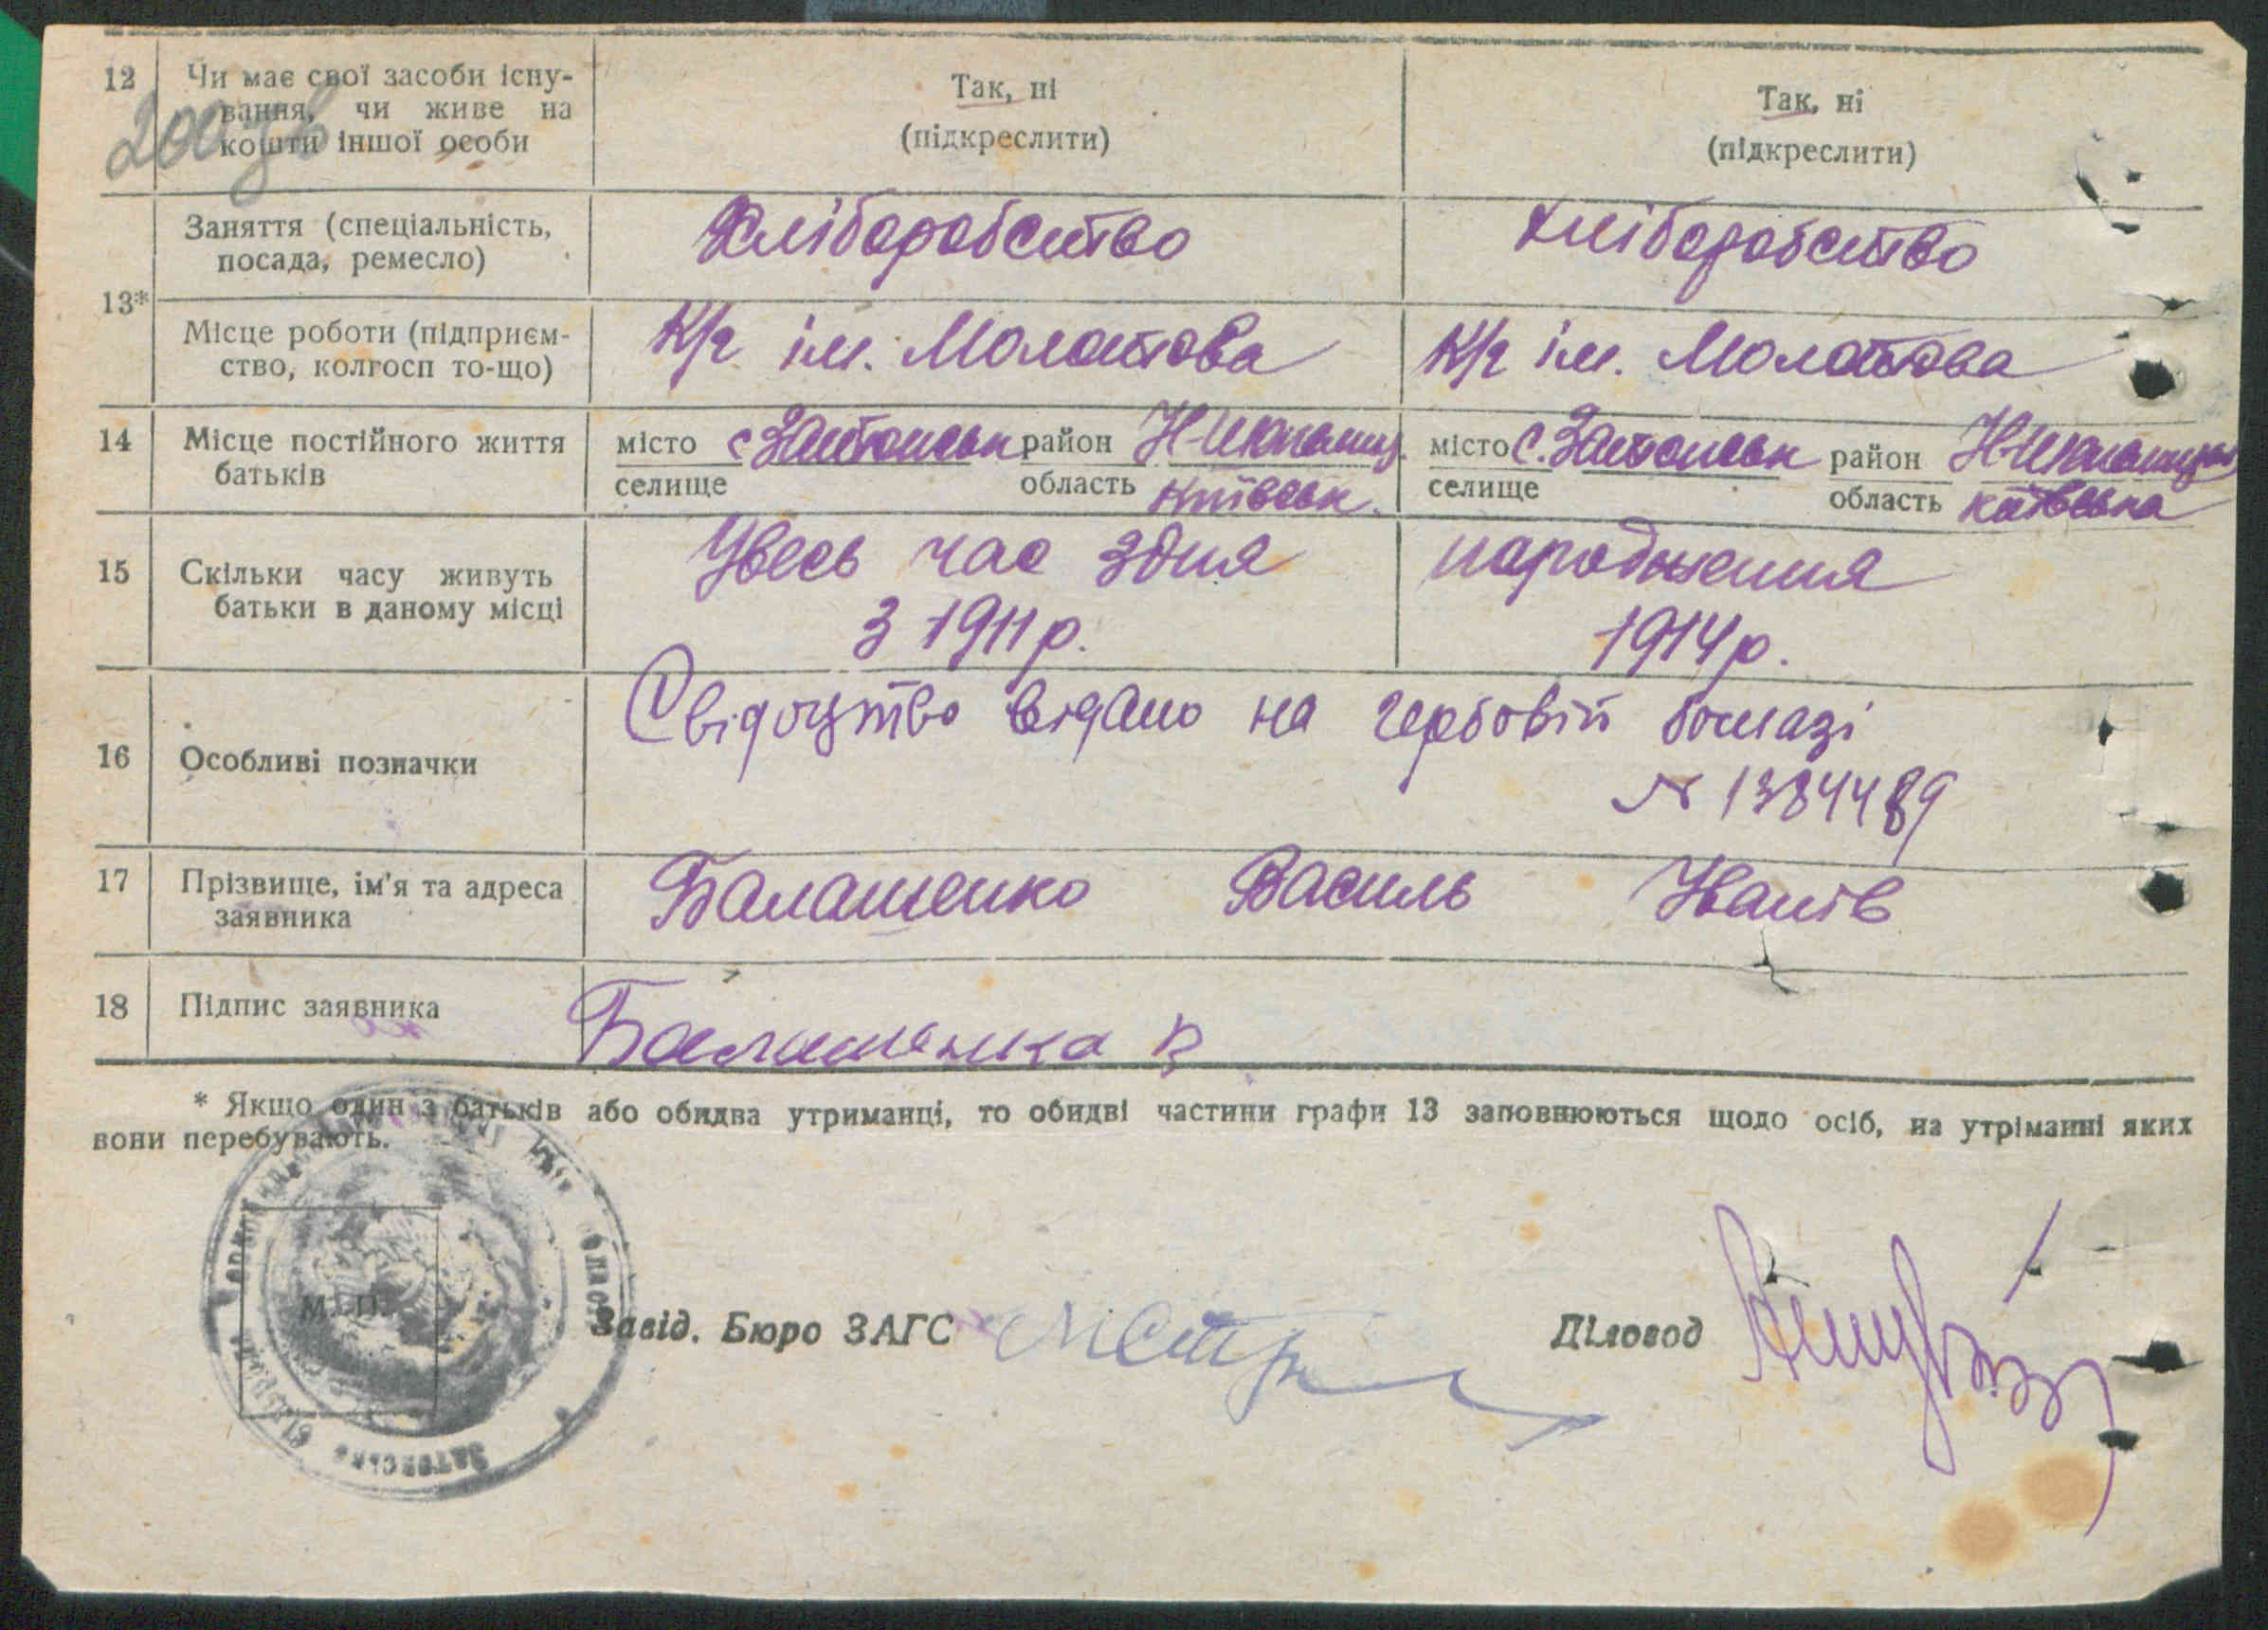 12 Чи має свої засоби існу-
вання, чи живе на
кошти іншої особи
Так, ні
(підкреслити)
Так, ні
(підкреслити)
13*
Заняття (спеціальність,
посада, ремесло)
Хліборобство
хліборобство
Місце роботи (підприєм-
ство, колгосп то-що)
К/г ім. Молотова
К/г ім. Молотова
14 Місце постійного життя
батьків
місто район
селище область Київськ.
місто район
селище область київська
15 Скільки часу живуть
батьки в даному місці
Увесь час здня народження
З 1911 р. 1914 р.
16 Особливі позначки
Свідоцтво видано на гербовій бомазі
№ 1384489
17 Прізвище, ім'я та адреса
заявника
Балашенко Василь Іванів
18 Підпис заявника
Балашенко В
* Якщо один з батьків або обидва утриманці, то обидві частини графи 13 заповнюються щодо осіб, на утріманні яких
вони перебувають.
М. П.
Завід. Бюро ЗАГС
Діловод